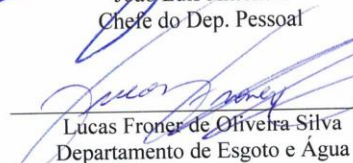 Chefe do Dep. Pessoal
Lucas Froner de Oliveira Silva
Departamento de Esgoto e Água